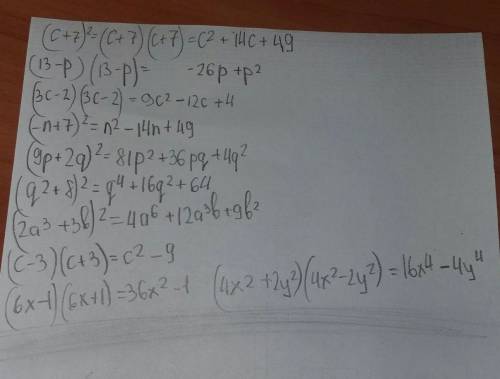 (c+7)²=(c+7)(c+7)=c²+14c+49
(13-p)(13-p)= -26p+p²
(3c-2)(3c-2)=9c²-12c+4
(-n+7)²=n²-14n+49
(9p+2q)²=81p²+36pq+4q²
(q²+8)²=q⁴+16q²+64
(2a³+3b)²=4a⁶+12a³b+9b²
(c-3)(c+3)=c²-9
(6x-1)(6x+1)=36x²-1 (4x²+2y²)(4x²-2y²)=16x⁴-4y⁴